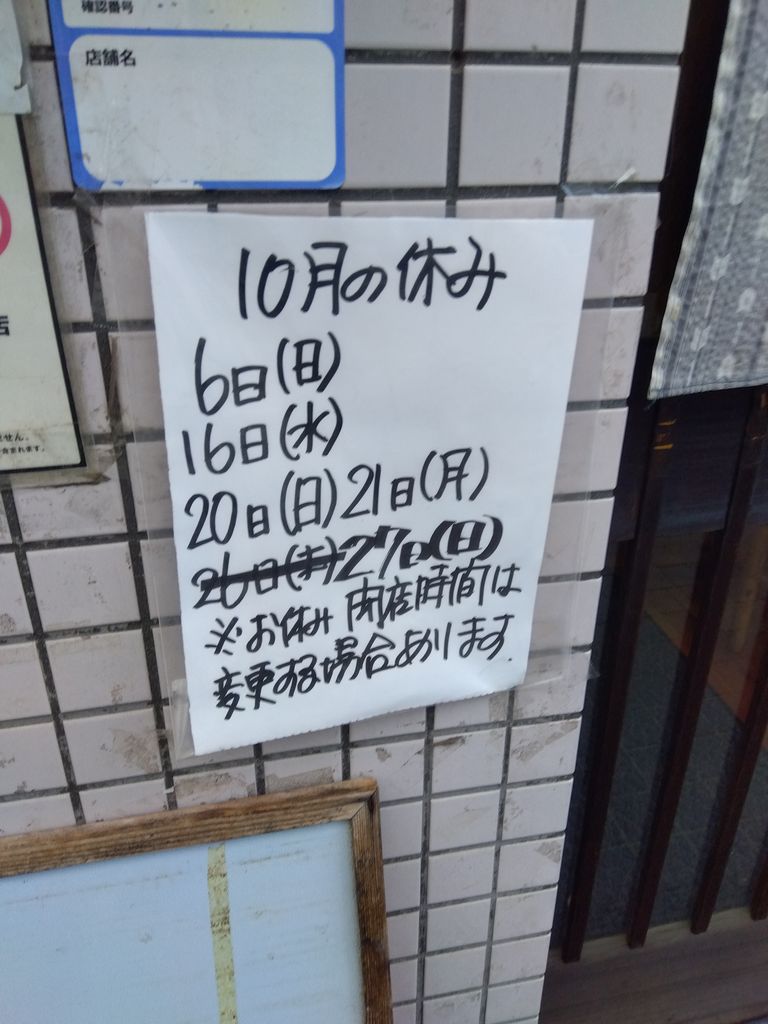 確認番号
店舗名
店
ません。
含まれます。
10月の休み
6日(日)
16日(水)
20日(日)21日(月)
26日(土)27日(日)
※お休み 開店時間は
変更する場合あります